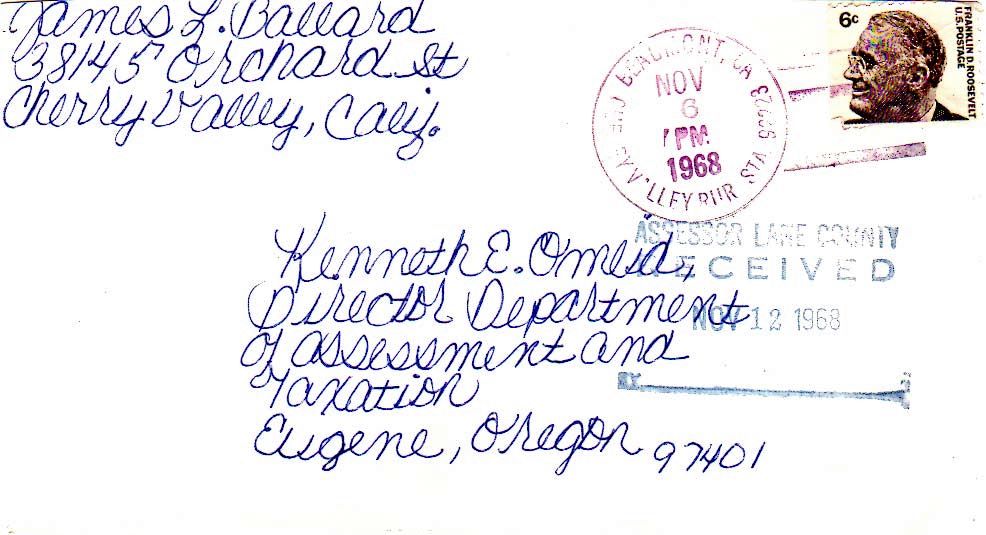 James L. Ballard
38145 Orchard St
Cherry Valley, Calif.
6c
FRANKLIN D. ROOSEVELT
U.S. POSTAGE
BEAUMONT, CA 92223
NOV
6
PM
1968
VALLEY RUR. STA
ASSESSOR LANE COUNTY
RECEIVED
NOV 12 1968
Kenneth E. Omeid,
Director Department
of Assessment and
Taxation
Eugene, Oregon 97401